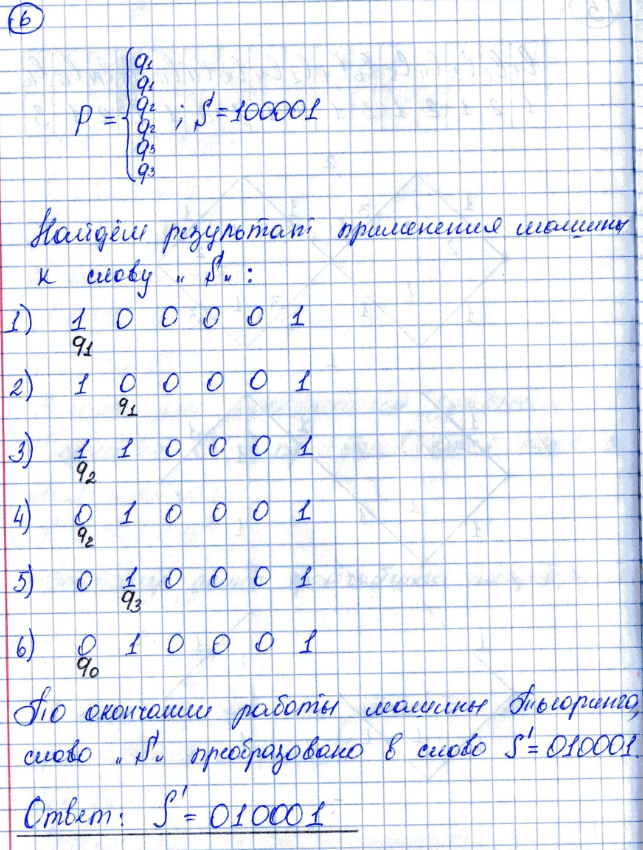 6
q1
q1
q2
P = { q2 ; S = 100001
q3
q3
Найдём результат применения машины
к слову „S“:
1) 1 0 0 0 0 1
q1
2) 1 0 0 0 0 1
q1
3) 1 1 0 0 0 1
q2
4) 0 1 0 0 0 1
q2
5) 0 1 0 0 0 1
q3
6) 0 1 0 0 0 1
q0
По окончании работы машины Тьюринга,
слово „S“ преобразовано в слово S' = 010001.
Ответ: S' = 010001